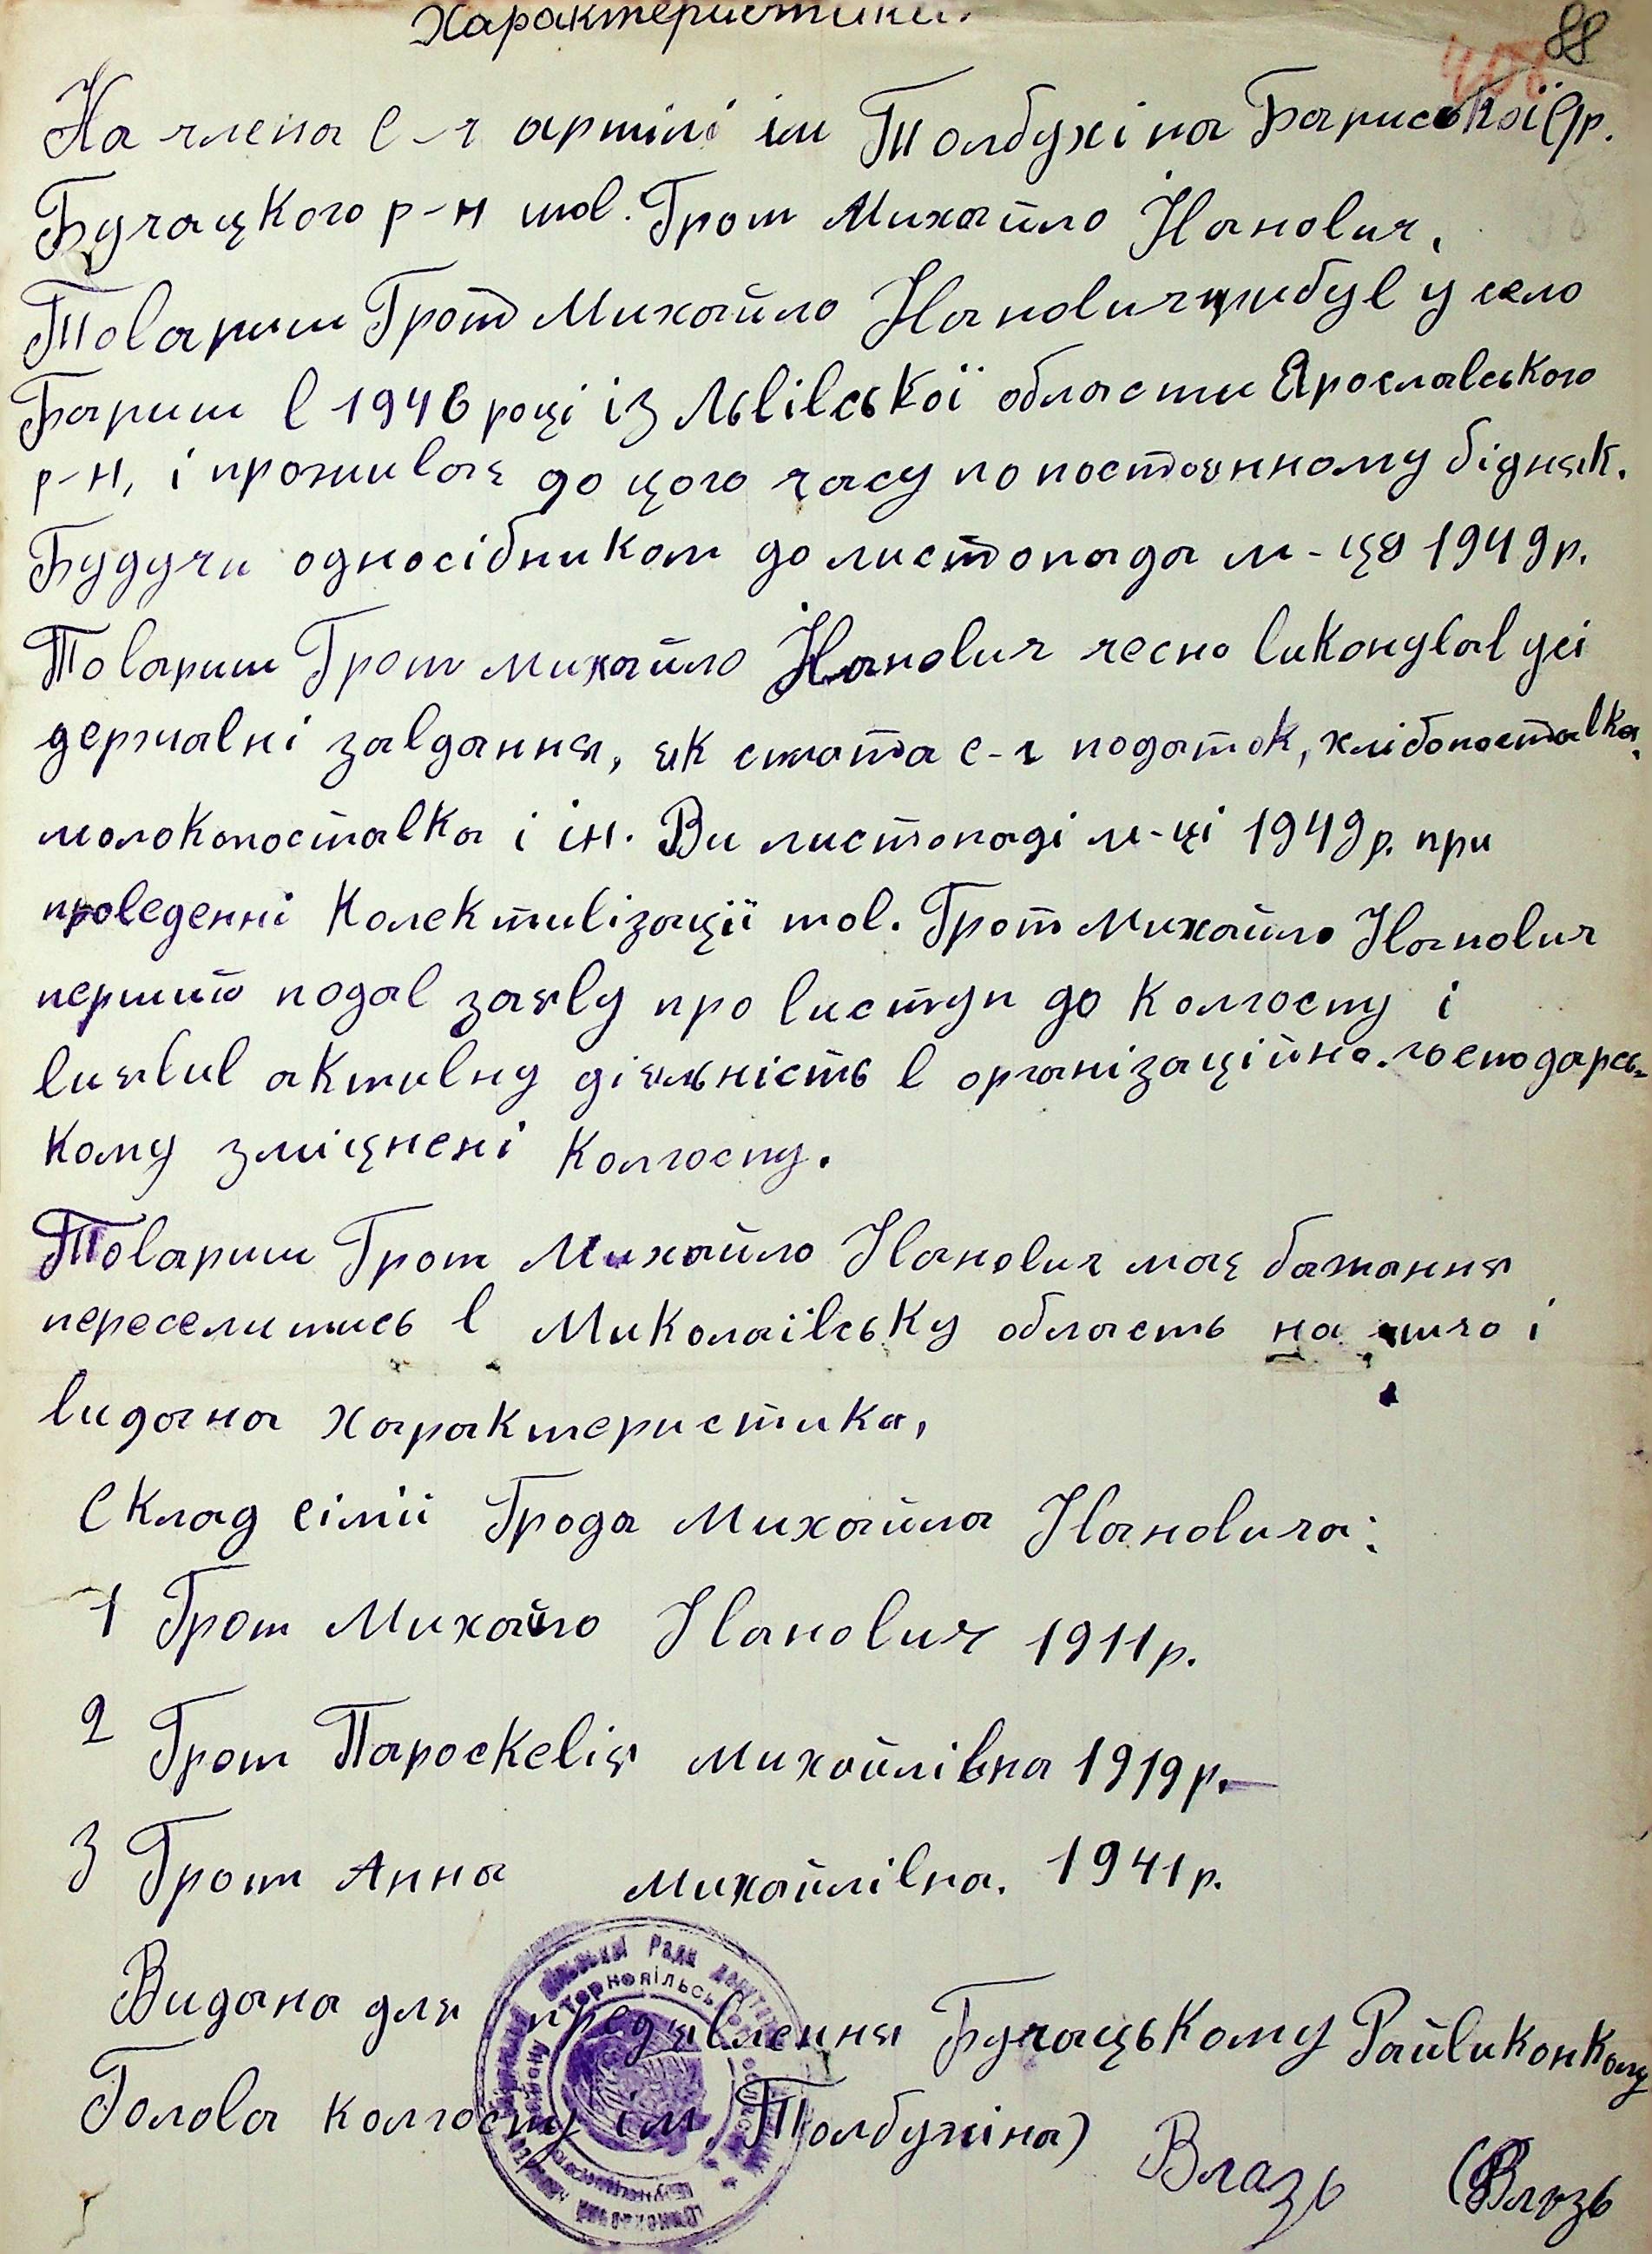 Характеристика.
88
На члена с-г артілі ім Толбухіна Бариської с/р.
Бучацкого р-н тов. Грот Михайло Іванович,
Товариш Грот Михайло Іванович прибув у село
Бариш в 1946 році із Львівської области Ярославського
р-н, і проживає до цого часу по постоянному бідняк.
Будучи односібником до листопада м-ця 1949 р.
Товариш Грот Михайло Іванович чесно виконував усі
державні завдання, як сплата с-г податок, хлібопоставка,
молокопоставка і ін. Ви листопаді м-ці 1949 р. при
проведенні колективізації тов. Грот Михайло Іванович
перший подав заяву про виступ до колгоспу і
виявив активну діяльність в організаційно-господарсь-
кому зміцнені колгоспу.
Товариш Грот Михайло Іванович має бажання
переселитись в Миколаївську область на що і
видана характеристика,
Склад сімії Грода Михайла Івановича:
1 Грот Михайло Іванович 1911 р.
2 Грот Параскевія Михайлівна 1919 р.
3 Грот Анна Михайлівна. 1941 р.
Видана для предявлення Бучацькому Райвиконкому
Голова колгоспу ім. Толбухіна)
Влазь (Влазь